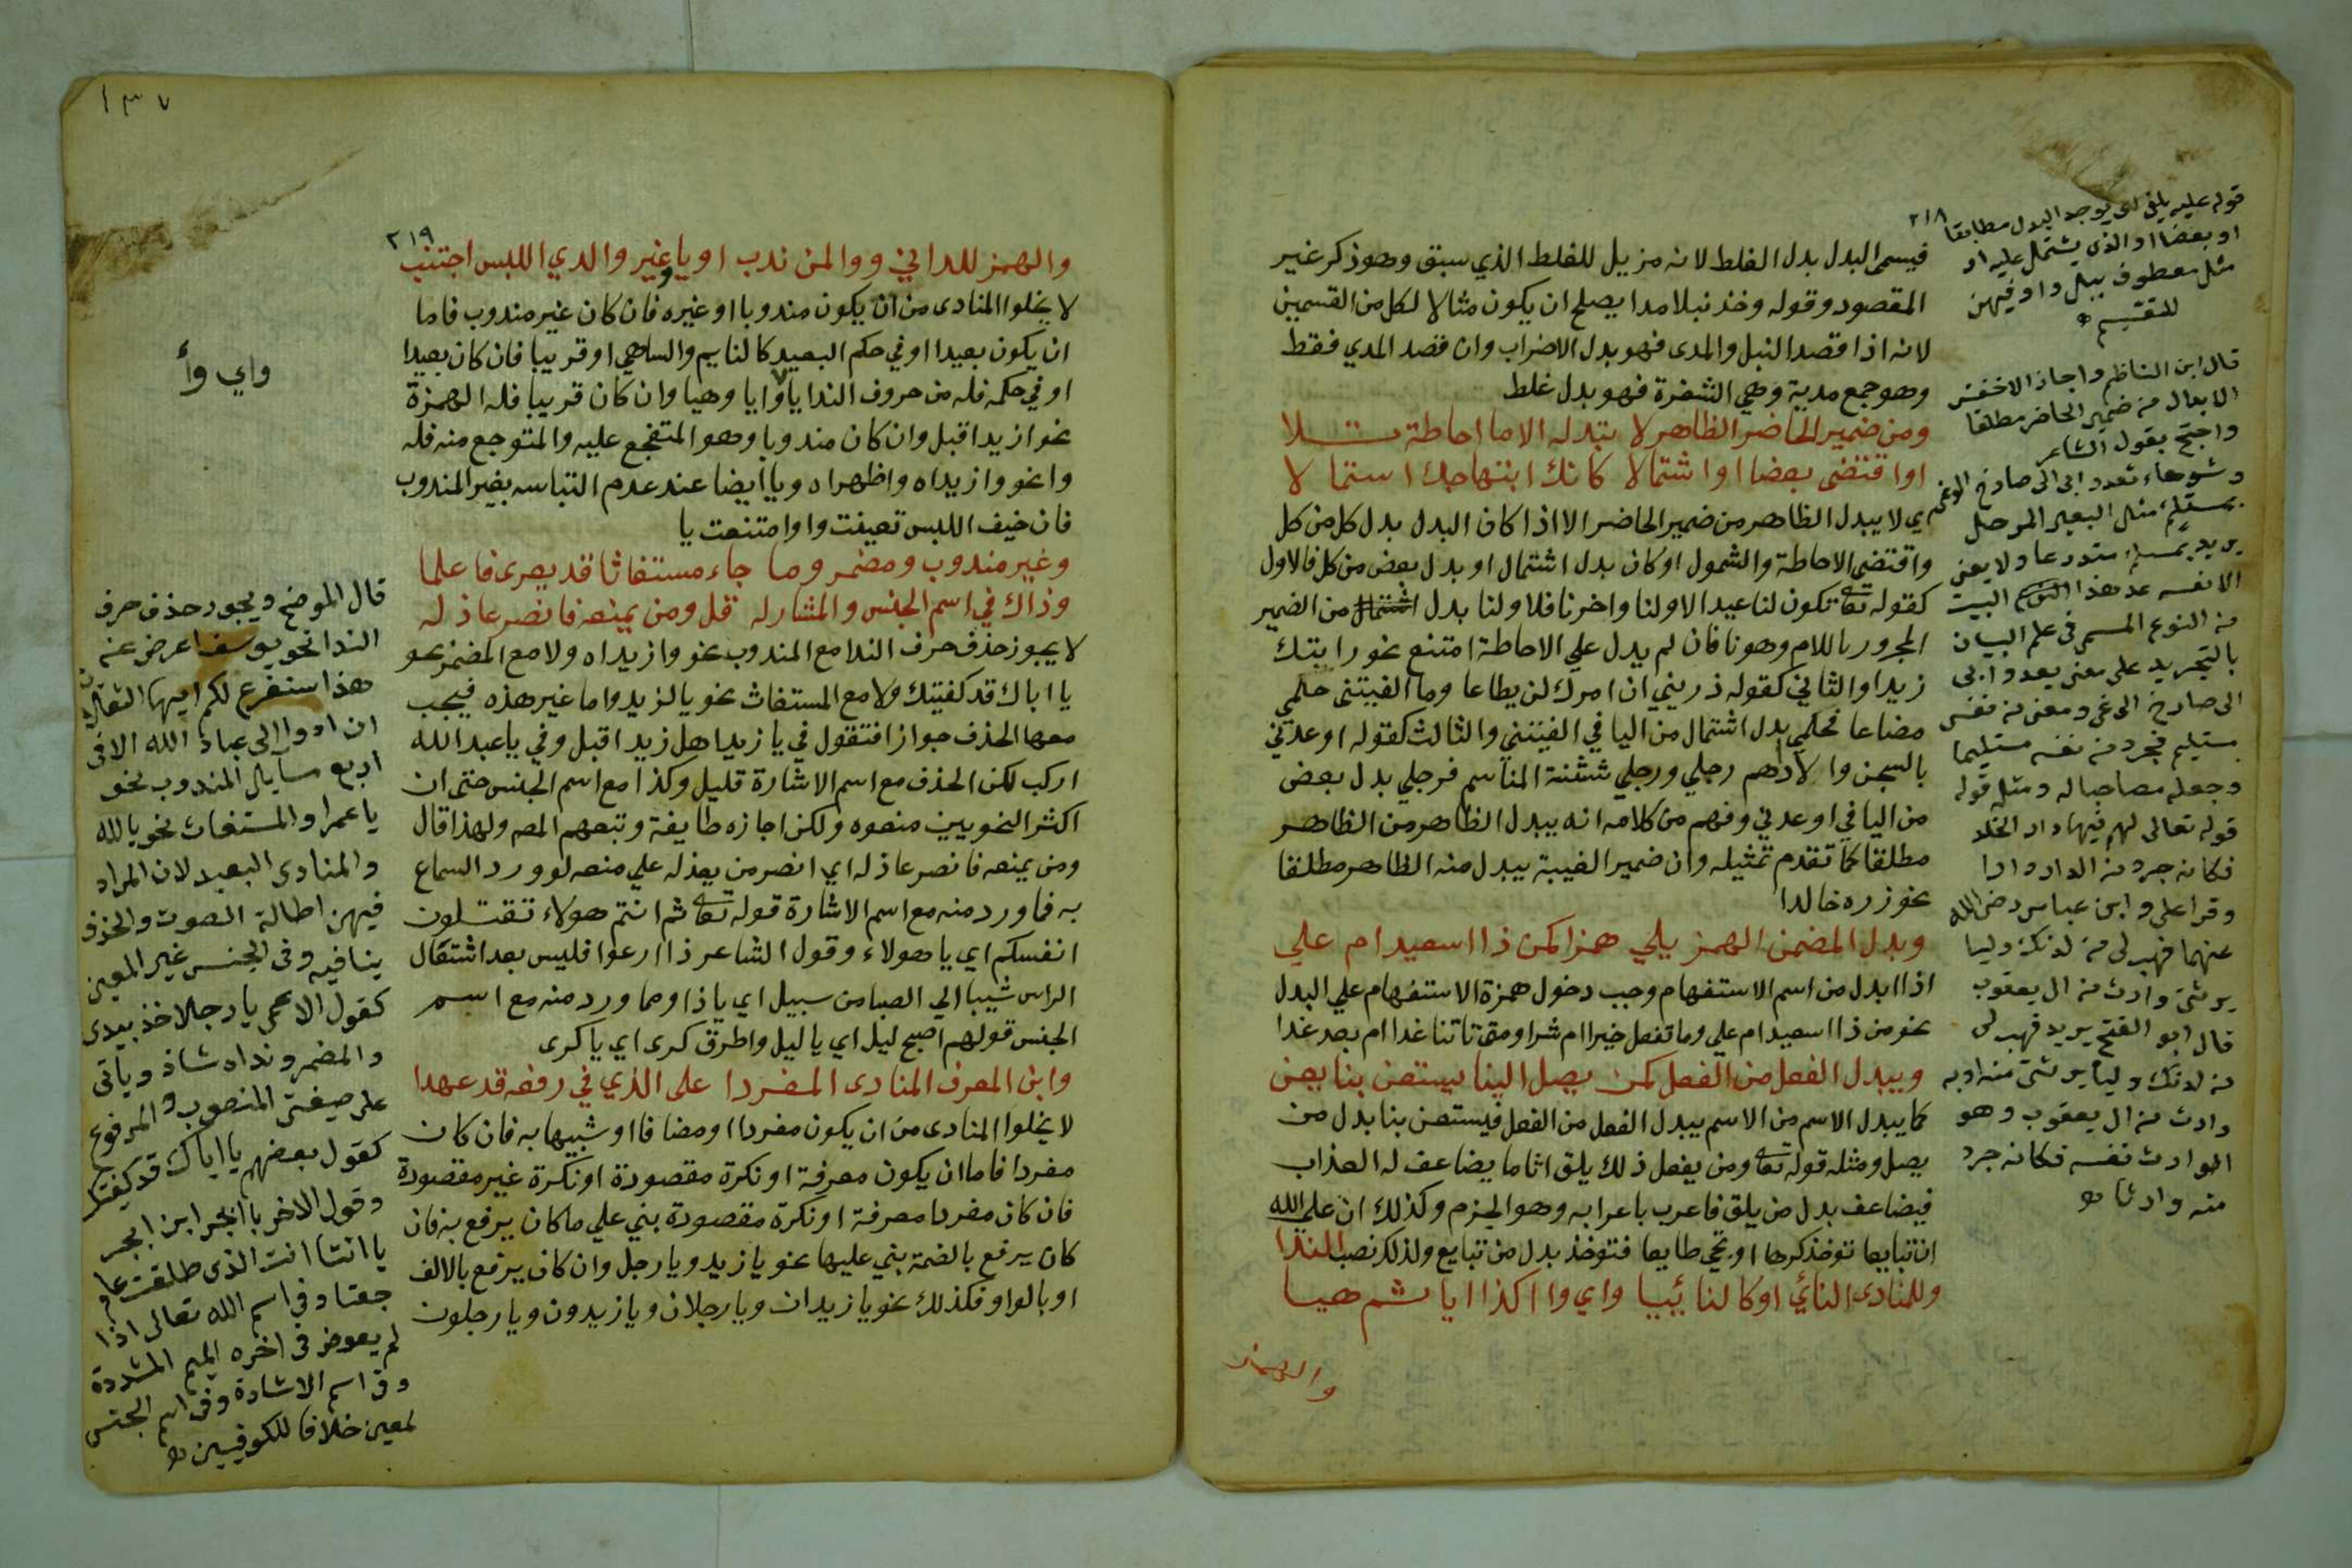 ٢١٨
فيسمى البدل بدل الغلط لانه مزيل للغلط الذي سبق وهو ذكر غير
المقصود وقوله وخذ نبلا مدا يصلح ان يكون مثالا لكل من القسمين
لانه اذا قصد النبل والمدى فهو بدل الاضراب وان قصد المدي فقط
وهو جمع مدية وهي الشفرة فهو بدل غلط
ومن ضمير الحاضر الظاهر لا تبدله الا ما احاطة جلا
او اقتضى بعضا او اشتمالا كانك ابتهاجك استمالا
اي لا يبدل الظاهر من ضمير الحاضر الا اذا كان البدل بدل كل من كل
واقتضى الاحاطة والشمول او كان بدل اشتمال او بدل بعض من كل فالاول
كقوله تعالى تكون لنا عيدا لاولنا واخرنا فلاولنا بدل من الضمير
المجرور باللام وهو نا فان لم يدل علي الاحاطة امتنع نحو رايتك
زيدا والثاني كقوله ذريني ان امرك لن يطاعا وما الفيتني حلمي
مضاعا فحلمي بدل اشتمال من اليا في الفيتني والثالث كقوله اوعدني
بالسجن والاداهم رجلي ورجلي شثنة المناسم فرجلي بدل بعض
من اليا في اوعدني وفهم من كلامه انه يبدل الظاهر من الظاهر
مطلقا كما تقدم تمثيله وان ضمير الغيبة يبدل منه الظاهر مطلقا
نحو زره خالدا
وبدل المضمن الهمز يلي همزا كمن ذا اسعيد ام علي
اذا ابدل من اسم الاستفهام وجب دخول همزة الاستفهام علي البدل
نحو من ذا اسعيد ام علي وما تفعل خيرا ام شرا ومتى تاتنا غدا ام بعد غدا
ويبدل الفعل من الفعل كمن يصل الينا يستعن بنا يعن
كما يبدل الاسم من الاسم يبدل الفعل من الفعل فيستعن بنا بدل من
يصل ومثله قوله تعالى ومن يفعل ذلك يلق اثاما يضاعف له العذاب
فيضاعف بدل من يلق فاعرب باعرابه وهو الجزم وكذلك ان علي الله
ان تبايعا توخذ كرها او تجي طايعا فتوخذ بدل من تبايع ولذلك نصب الندا
وللمنادى النائي او كالنائي يا واي وا اكذا ايا ثم هيا
والهمز
قوله عليه يلفى اي يوجد البدل مطابقا
او بعضا او الذي يشتمل عليه او
مثل معطوف ببل واو فيهن
للتقسيم
قال ابن الناظم واجاز الاخفش
الابدال من ضمير الحاضر مطلقا
واحتج بقول الشاعر
وشوهاء تعدو ابي الى صارخ الوغى
بمستلئم مثل البعير المرحل
يريد بمستلئم متدرعا ولا يعني
الا نفسه عد هذا البيت
من النوع المسمى في علم البيان
بالتجريد على معنى يعدو ابي
الى صارخ الوغى ومعنى من نفس
مستليم فجرد من نفسه مستليما
وجعله مصاحبا له ومثله قوله
قوله تعالى لهم فيها دار الخلد
فكانه جرد من الدار دارا
وقرا على وابن عباس رضى الله
عنهما فهب لى من لدنك وليا
يرثنى وارث من ال يعقوب
قال ابو الفتح يريد فهب لى
من لدنك وليا يرثنى منه او به
وارث من ال يعقوب وهو
الوارث نفسه فكانه جرد
منه وارثا
١٣٧
٢١٩
والهمز للداني ووا لمن ندب او يا وغير وا لدي اللبس اجتنب
لا يخلوا المنادى من ان يكون مندوبا او غيره فان كان غير مندوب فاما
ان يكون بعيدا او في حكم البعيد كالنايم والساهي او قريبا فان كان بعيدا
او في حكمه فله من حروف الندا يا وايا وهيا وان كان قريبا فله الهمزة
نحو ازيد اقبل وان كان مندوبا وهو المتفجع عليه والمتوجع منه فله
وا نحو وازيداه واظهراه ويا ايضا عند عدم التباسه بغير المندوب
فان خيف اللبس تعينت وا وامتنعت يا
وغير مندوب ومضمر وما جاء مستغاثا قد يعرى فاعلما
وذاك في اسم الجنس والمشار له قل ومن يمنعه فانصر عاذله
لا يجوز حذف حرف الندا مع المندوب نحو وازيداه ولا مع المضمر نحو
يا اياك قد كفيتك ولا مع المستغاث نحو يا لزيد واما غير هذه فيجب
معها الحذف جوازا فتقول في يا زيد اهل زيد اقبل وفي يا عبد الله
اركب لكن الحذف مع اسم الاشارة قليل وكذا مع اسم الجنس حتى ان
اكثر النحويين منعوه ولكن اجازه طايفة وتبعهم المص ولهذا قال
ومن يمنعه فانصر عاذله اي انصر من يعذله علي منعه لورود السماع
به فما ورد منه مع اسم الاشارة قوله تعالى ثم انتم هولاء تقتلون
انفسكم اي يا هولاء وقول الشاعر ذا ارعوا فليس بعد اشتعال
الراس شيبا الي الصبا من سبيل اي يا ذا ومما ورد منه مع اسم
الجنس قولهم اصبح ليل اي يا ليل واطرق كرى اي يا كرى
وابن المعرف المنادى المفردا على الذي في رفعه قد عهدا
لا يخلوا المنادى من ان يكون مفردا او مضافا او شبيها به فان كان
مفردا فاما ان يكون معرفة او نكرة مقصودة او نكرة غير مقصودة
فان كان مفردا معرفة او نكرة مقصودة بني علي ما كان يرفع به فان
كان يرفع بالضمة بني عليها نحو يا زيد ويا رجل وان كان يرفع بالالف
او بالواو فكذلك نحو يا زيدان ويا رجلان ويا زيدون ويا رجلون
واي وأ
قال الموضح ويجوز حذف حرف
الندا نحو يوسف اعرض عن
هذا سنفرغ لكم ايها الثقلان
ان ادوا الى عباد الله الا فى
اربع مسايل المندوب نحو
يا عمرا والمستغاث نحو يا لله
والمنادى البعيد لان المراد
فيهن اطالة الصوت والحذف
ينافيه وفى الجنس غير المعين
كقول الاعمى يا رجلا خذ بيدى
والمضمر ونداه شاذ وياتى
على صيغتى المنصوب والمرفوع
كقول بعضهم يا اياك قد كفيتك
وقول الاخر يا ابجر ابن ابجر
يا انتا انت الذى طلقت عام
جعتا وفى اسم الله تعالى اذا
لم يعوض فى اخره الميم المشددة
وفى اسم الاشارة وفى اسم الجنس
لمعين خلافا للكوفيين